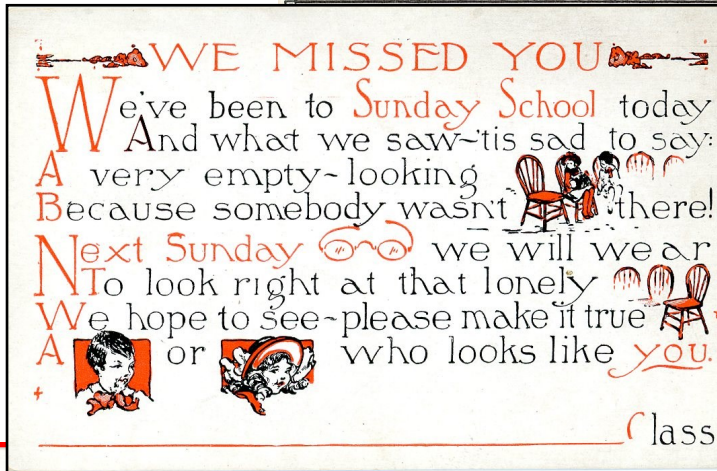 WE MISSED YOU
We've been to Sunday School today
And what we saw-'tis sad to say:
A very empty-looking
Because somebody wasn't there!
Next Sunday we will wear
To look right at that lonely
We hope to see-please make it true
A or who looks like you.
Class